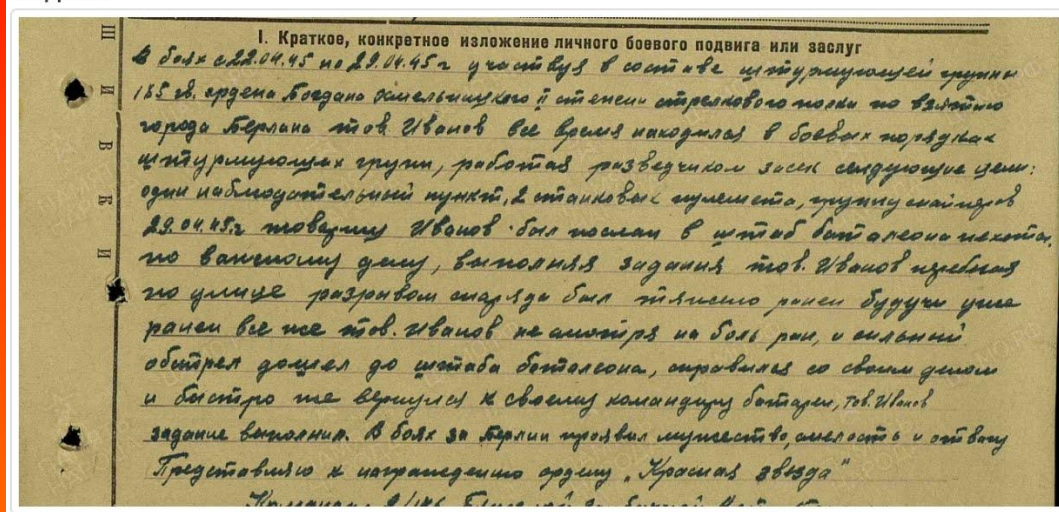 I. Краткое, конкретное изложение личного боевого подвига или заслуг
В боях с 22.04.45 по 29.04.45 г участвуя в составе штурмующей группы
185 гв. ордена Богдана Хмельницкого II степени стрелкового полка по взятию
города Берлина тов. Иванов все время находился в боевых порядках
штурмующих групп, работая разведчиком засек следующие цели:
один наблюдательный пункт, 2 станковых пулемета, группу снайперов
29.04.45г товарищ Иванов был послан в штаб баталеона пехоты,
по важному делу, выполняя задания тов. Иванов перебегая
по улице разрывом снаряда был тяжело ранен будучи уже
ранен все же тов. Иванов не смотря на боль ран, и сильный
обстрел дошел до штаба баталеона, справился со своим делом
и быстро же вернулся к своему командиру батареи, тов. Иванов
задание выполнил. В боях за Берлин проявил мужество, смелость и отвагу
Представляю к награждению ордену „Красная звезда"
Ш
И
В
К
И